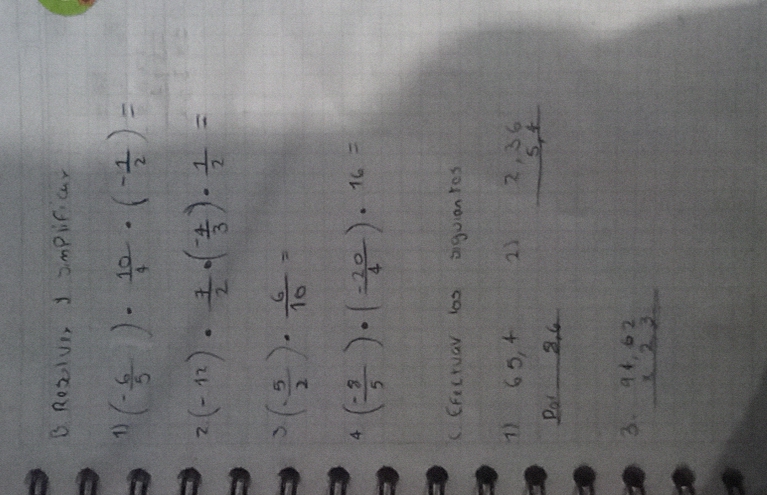 B Resolver y simplificar
1) (-6/5) · 10/4 · (-1/2) =
2 (-12) · 7/2 · (-4/3) · 1/2 =
3 (-5/2) · 6/10 =
4 (-8/5) · (-20/4) · 16 =
C Efectuar los siguientes
1) 65,4 2) 2,36
Por 5,4
3. 94,62
x 2 3